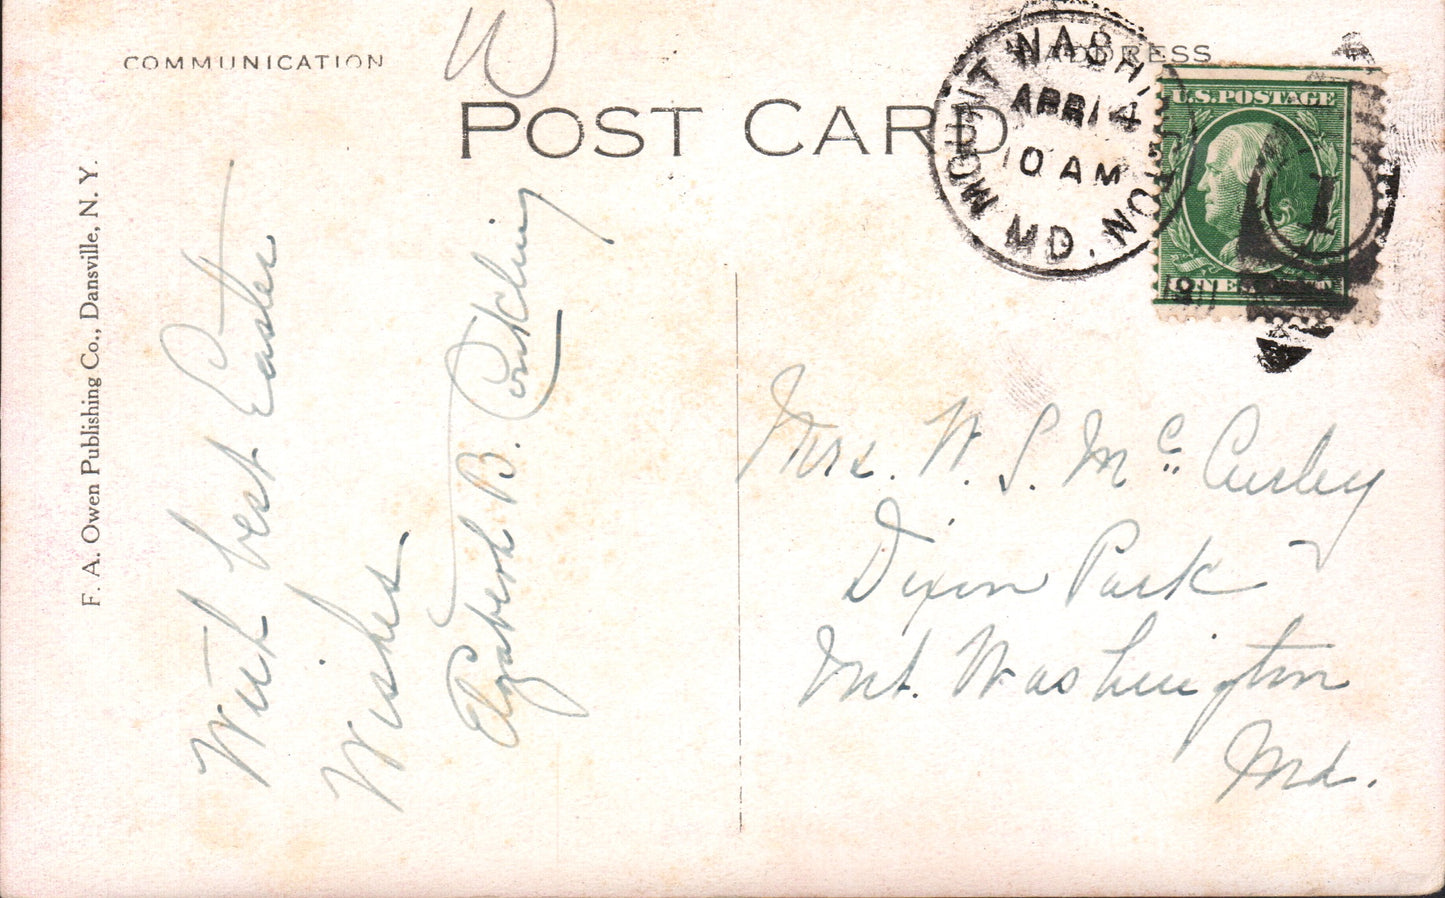 COMMUNICATION
ADDRESS
POST CARD
MOUNT WASHINGTON
APR 14
10 AM
MD.
1911
U.S.POSTAGE
1
F. A. Owen Publishing Co., Dansville, N. Y.
With best Easter
Wishes
Elizabeth B. Conkling
Mrs. W. S. Mc Curley
Dixon Park
Mt. Washington
Md.